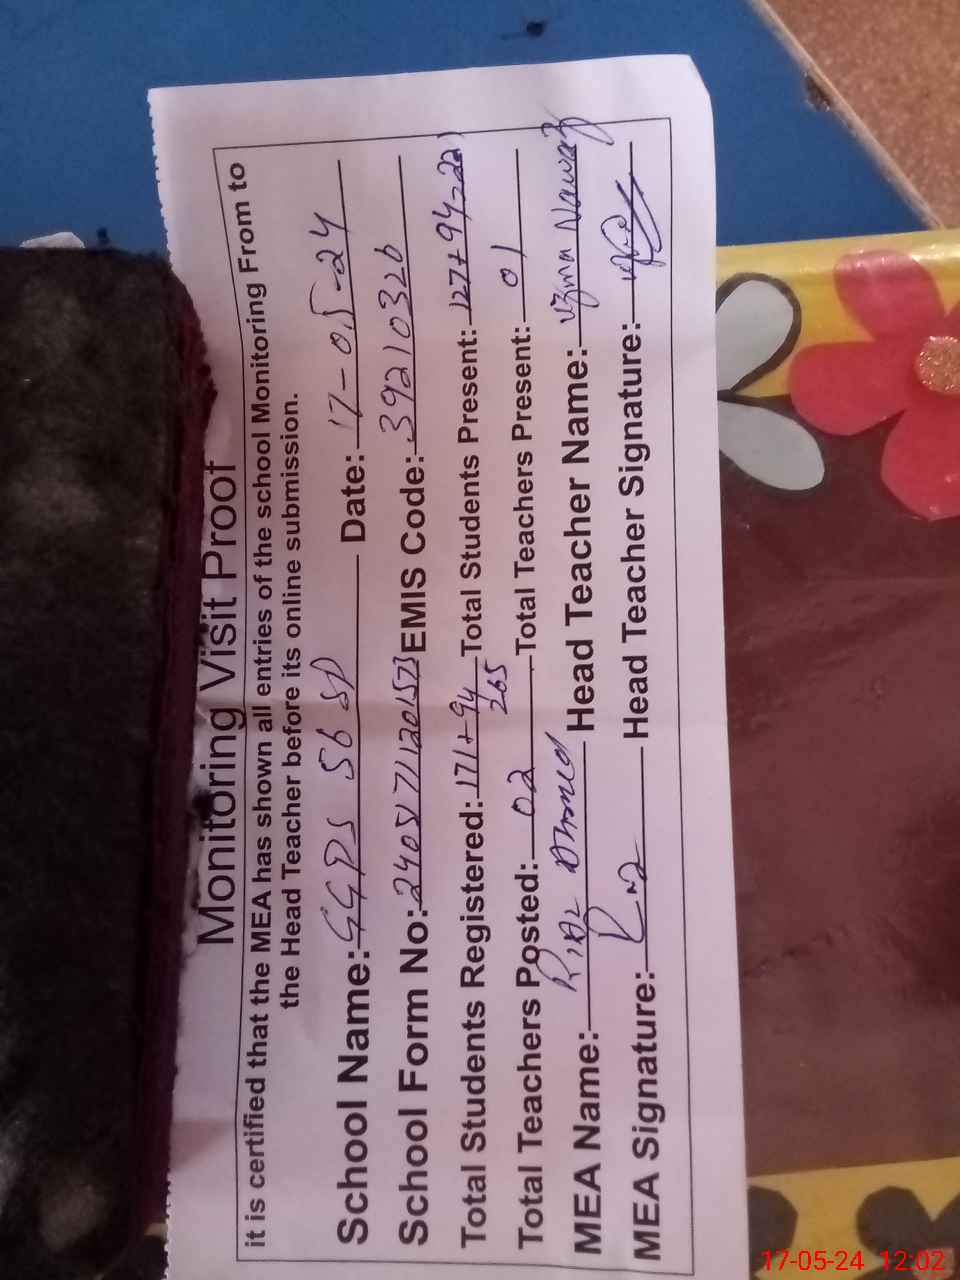 Monitoring Visit Proof
it is certified that the MEA has shown all entries of the school Monitoring From to
the Head Teacher before its online submission.
School Name: GGPS 56 SP Date: 17-05-24
School Form No: 24051711201573 EMIS Code: 39210326
Total Students Registered: 171+94 Total Students Present: 127+94=221
265
Total Teachers Posted: 02 Total Teachers Present: 01
MEA Name: Riaz Ahmed Head Teacher Name: Uzma Nawaz
MEA Signature: Head Teacher Signature:
17-05-24 12:02